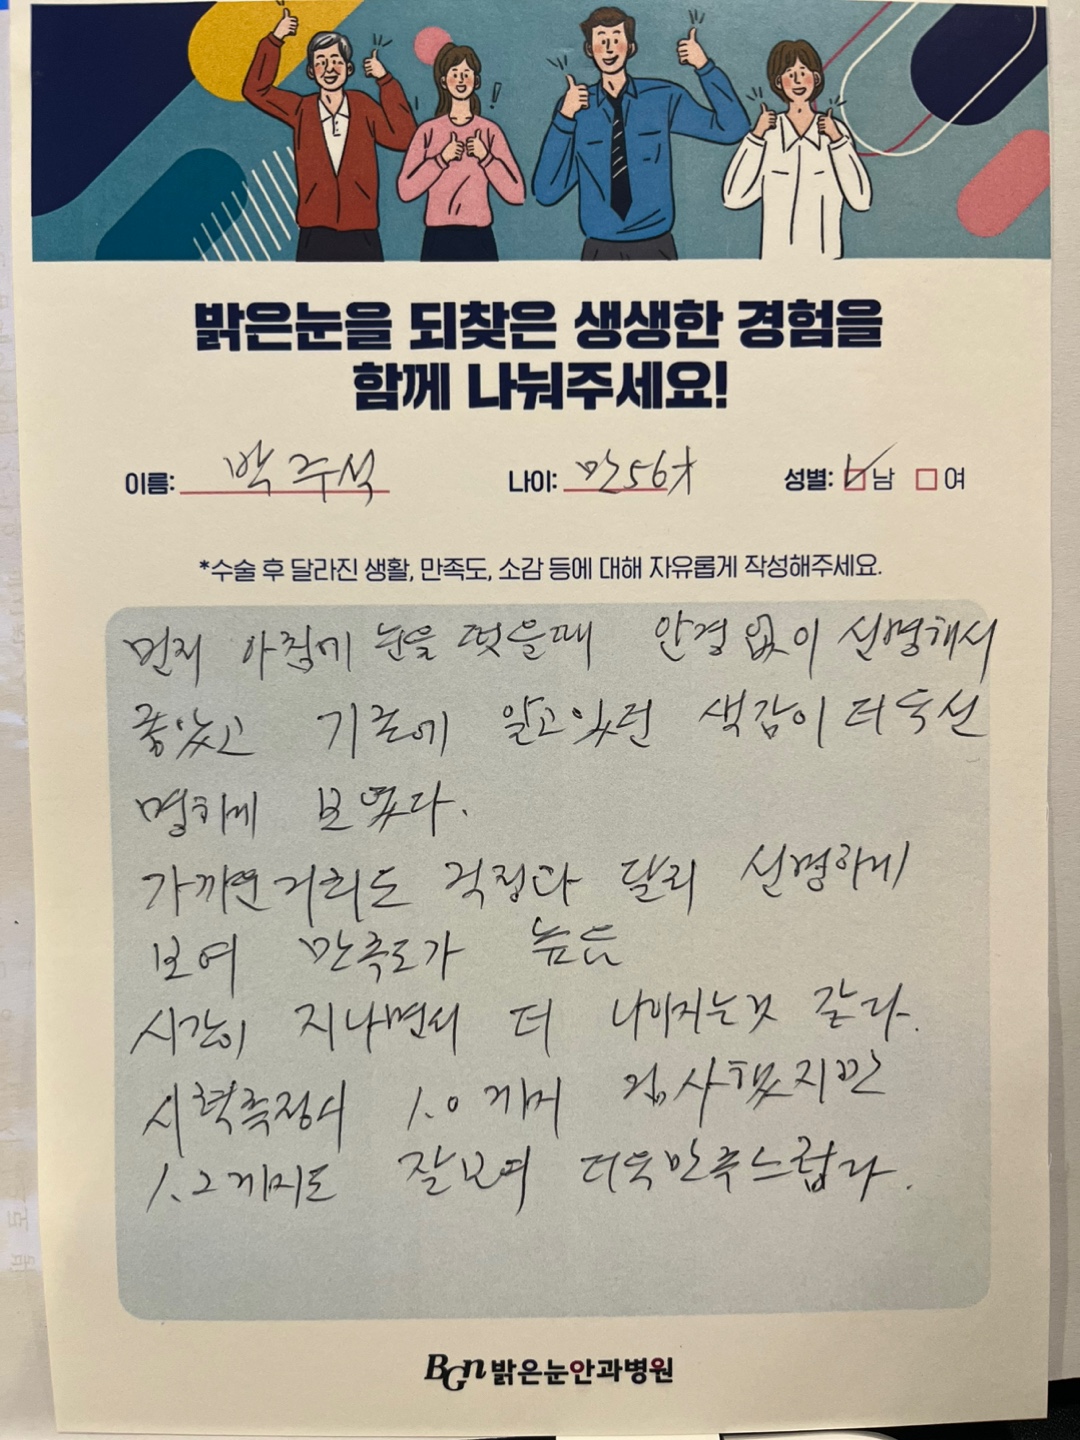 밝은눈을 되찾은 생생한 경험을
함께 나눠주세요!
이름: 박주석 나이: 만56才 성별: ☑남 ☐여
*수술 후 달라진 생활, 만족도, 소감 등에 대해 자유롭게 작성해주세요.
먼저 아침에 눈을 떳을때 안경없이 선명해서
좋았고 기존에 알고있던 색감이 더욱선
명하게 보였다.
가까운거리도 걱정과 달리 선명하게
보여 만족도가 높음
시간이 지나면서 더 나아지는것 같다.
시력측정시 1.0까지 검사했지만
1.2까지도 잘보여 더욱만족스럽다.
BGn 밝은눈안과병원